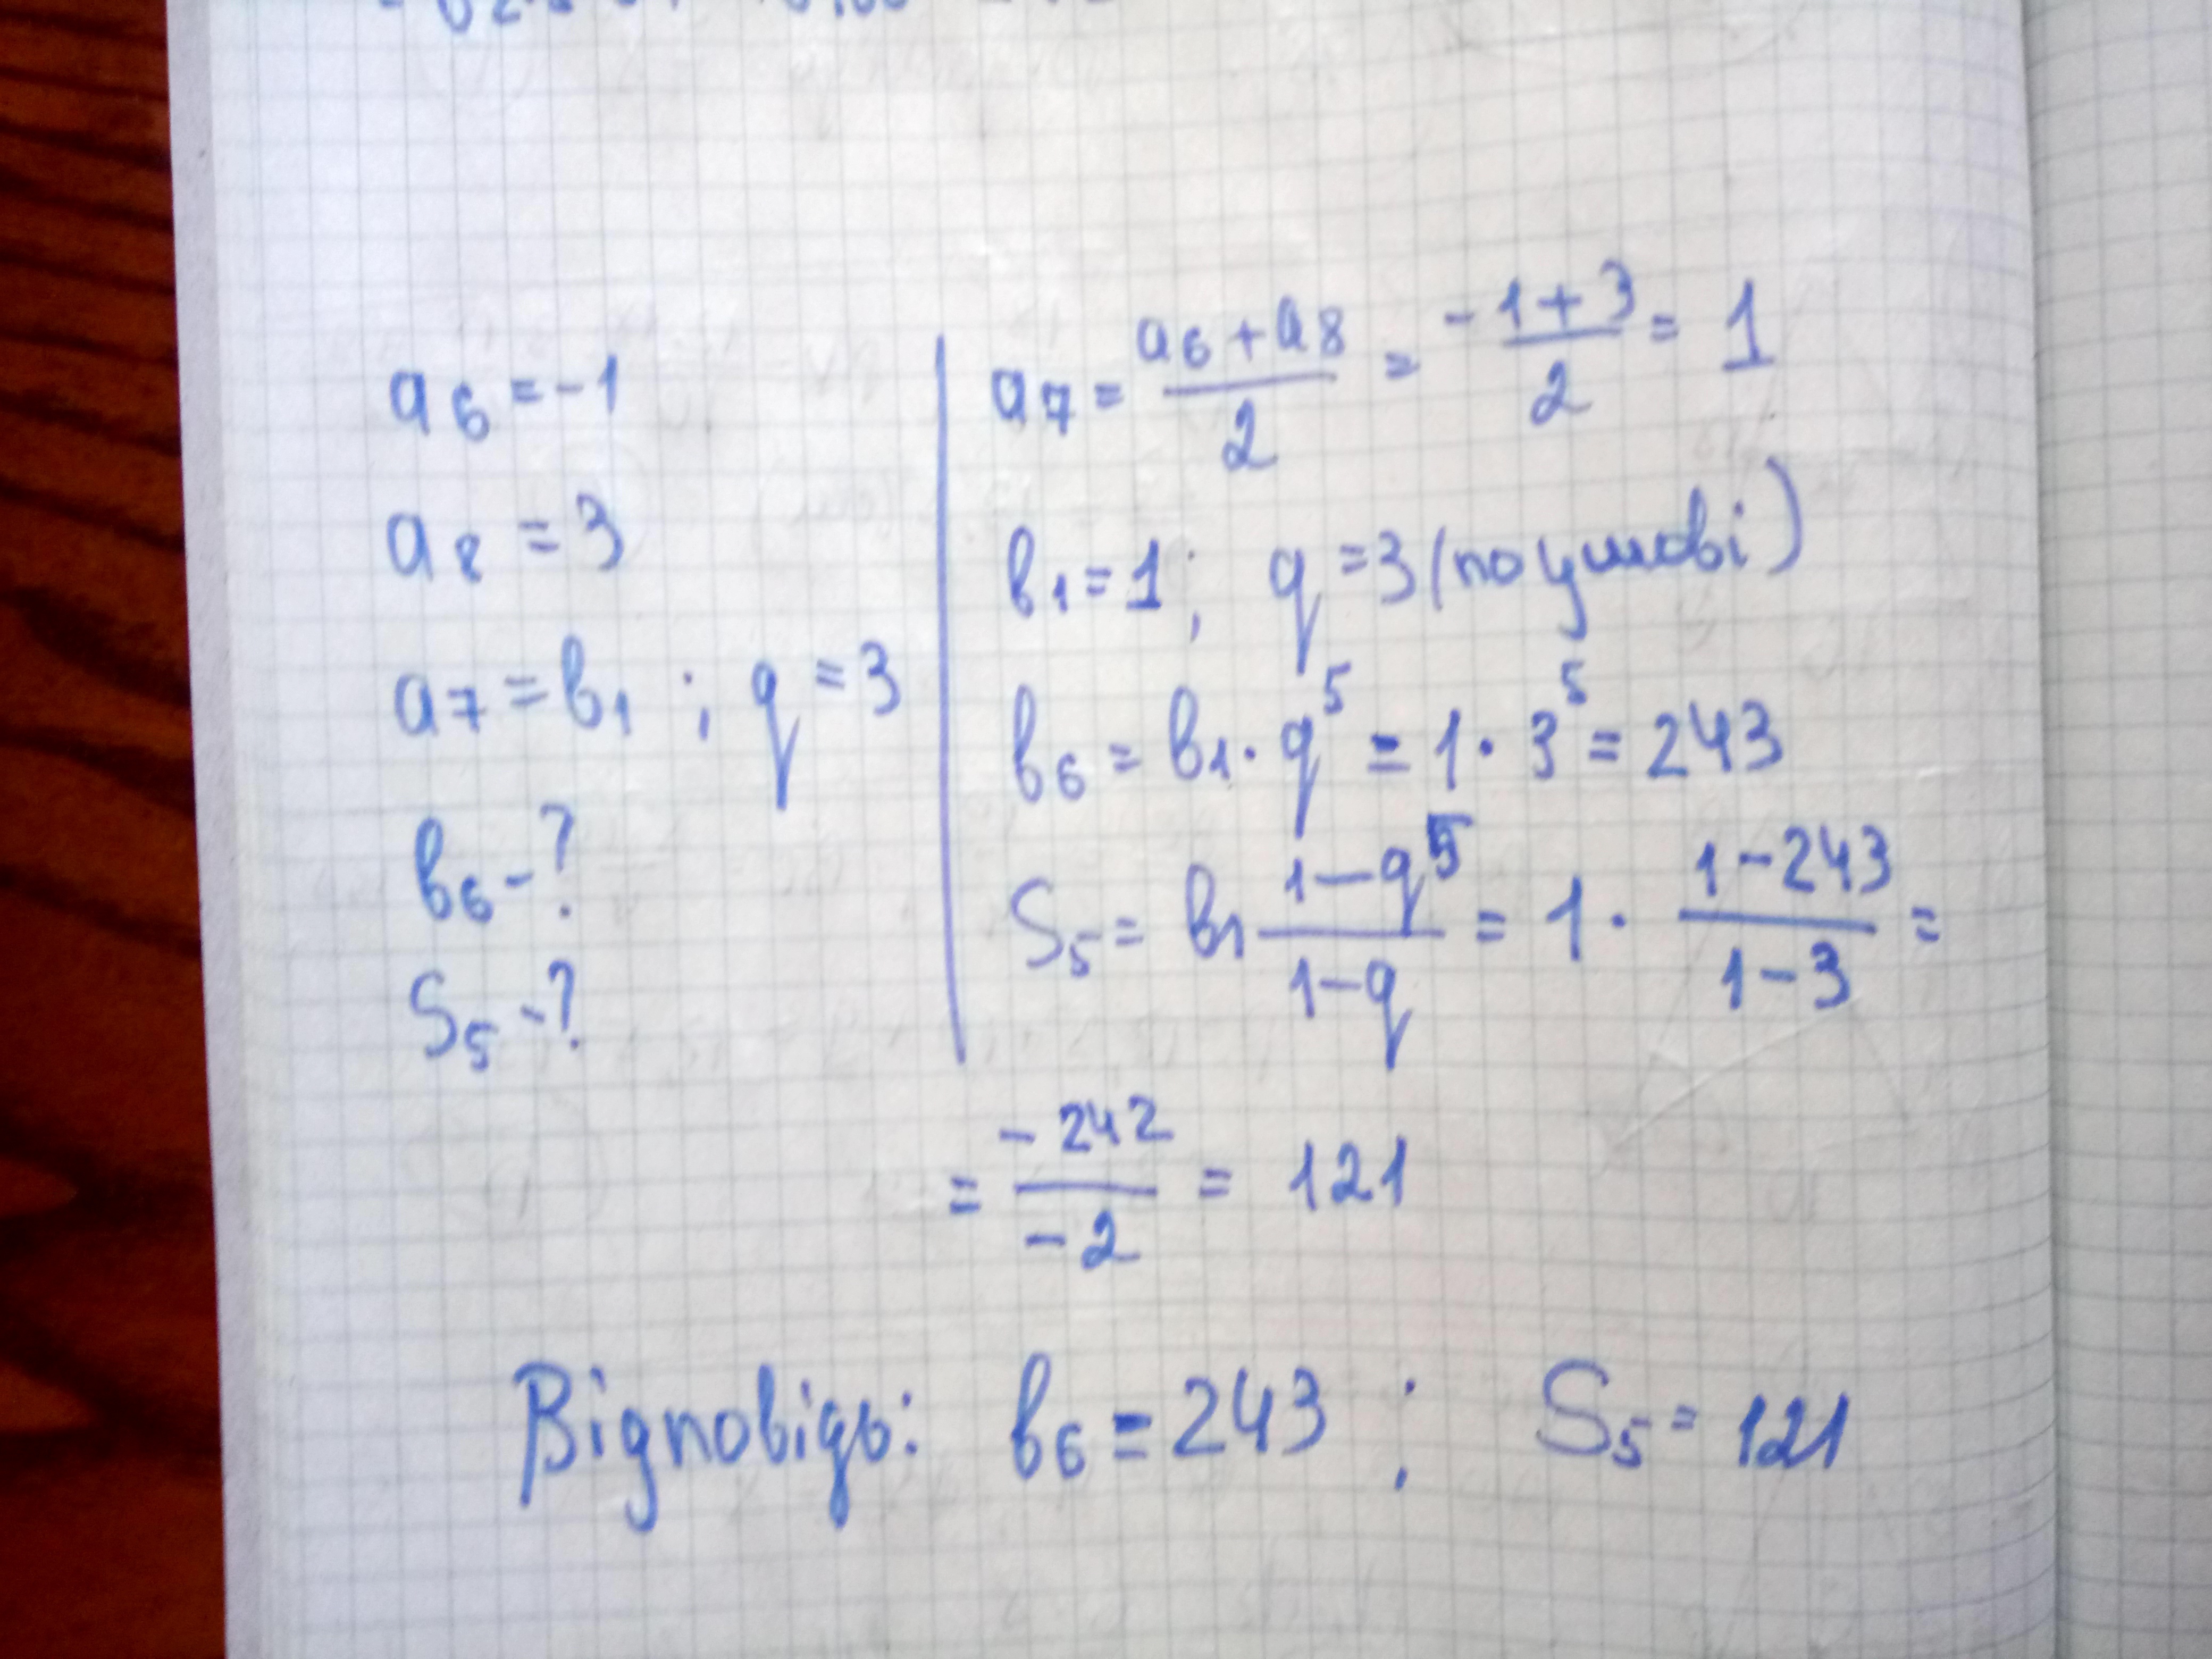 a6 = -1
a8 = 3
a7 = b1 ; q = 3
b6 - ?
S5 - ?
a7 = (a6 + a8)/2 = (-1 + 3)/2 = 1
b1 = 1; q = 3 (по умові)
b6 = b1 · q^5 = 1 · 3^5 = 243
S5 = b1 (1 - q^5)/(1 - q) = 1 · (1 - 243)/(1 - 3) =
= (-242)/(-2) = 121
Відповідь: b6 = 243 ; S5 = 121